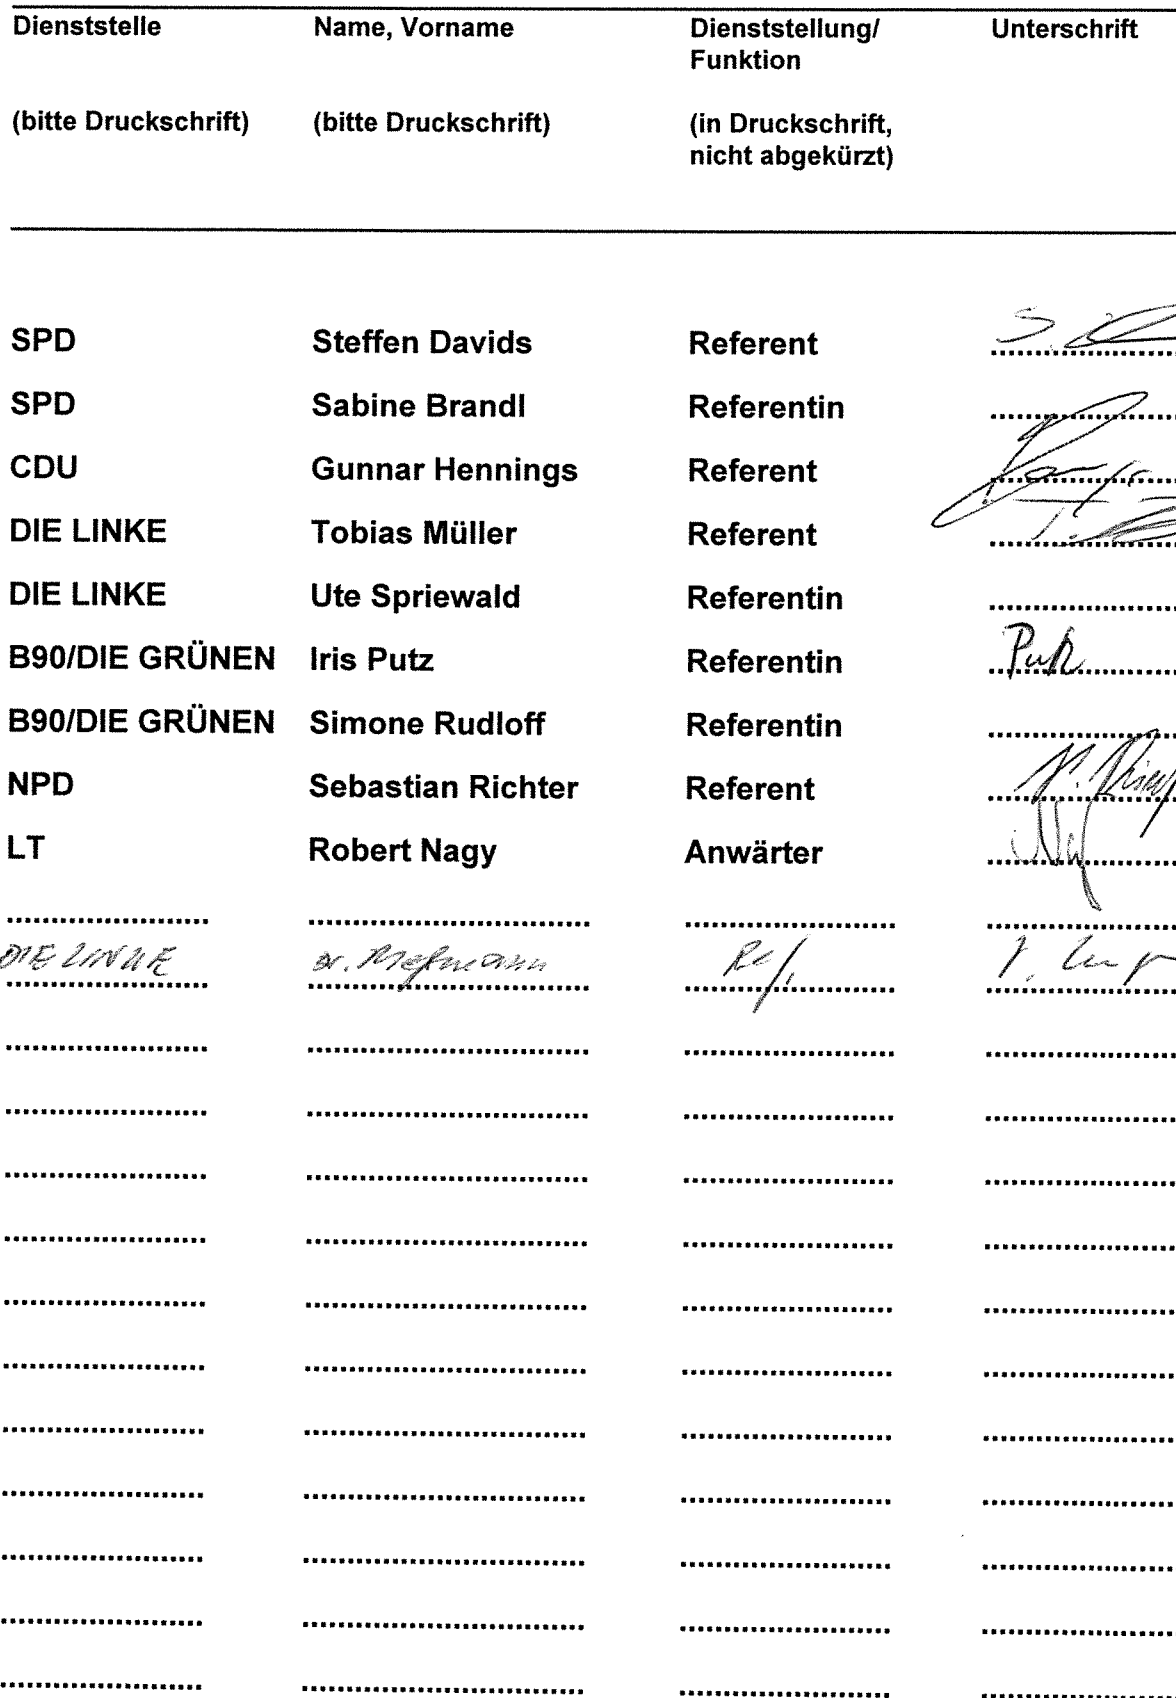 Dienststelle Name, Vorname Dienststellung/ Unterschrift
Funktion
(bitte Druckschrift) (bitte Druckschrift) (in Druckschrift,
nicht abgekürzt)
SPD Steffen Davids Referent
SPD Sabine Brandl Referentin
CDU Gunnar Hennings Referent
DIE LINKE Tobias Müller Referent
DIE LINKE Ute Spriewald Referentin
B90/DIE GRÜNEN Iris Putz Referentin Putz
B90/DIE GRÜNEN Simone Rudloff Referentin
NPD Sebastian Richter Referent
LT Robert Nagy Anwärter
DIE LINKE Dr. Ref.